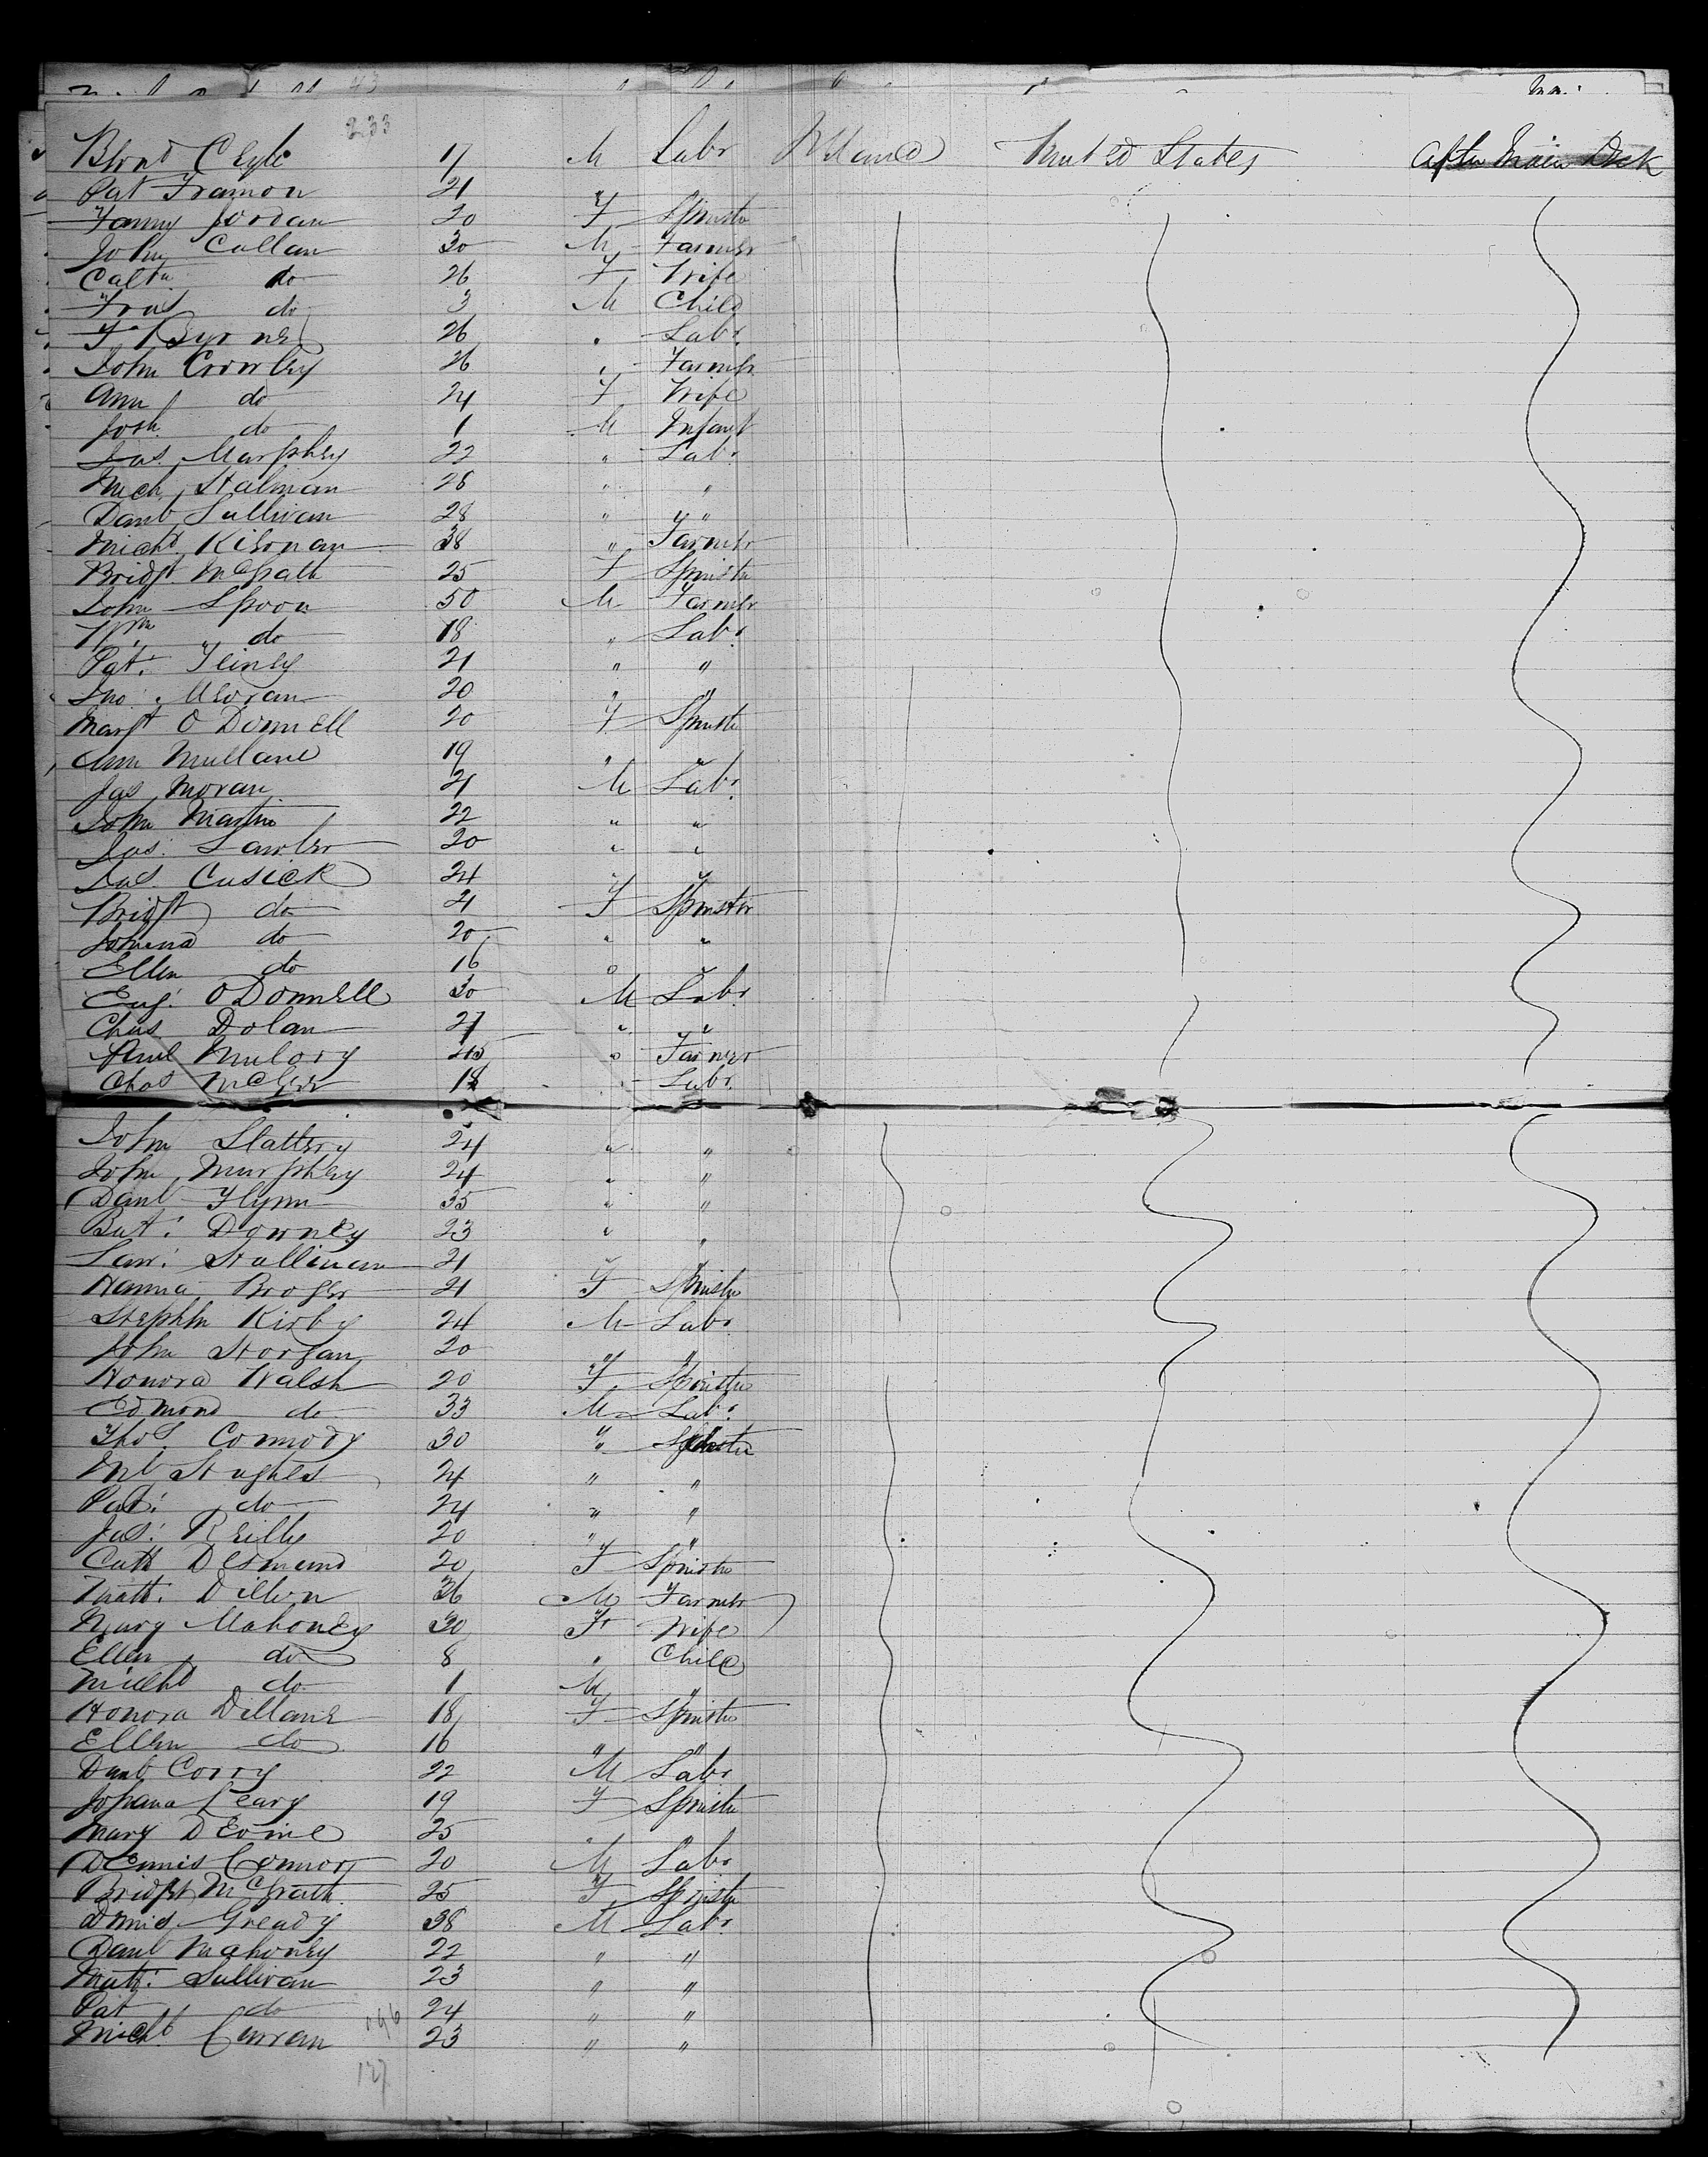 233
Clyde 17 M Labr Ireland United States After Main Deck
Pat 21
Fanny Jordan 20 F Spinstr
John Callan 30 M Farmer
Cathn do 26 F Wife
Fras do 3 M Child
T Byrne 26 " Labr
John Crowley 26 " Farmer
Ann do 24 F Wife
Josh do 1 M Infant
Jas Murphey 22 " Labr
Mich Halman 26 " "
Danl Sullivan 28 " "
Michl Kisnan 38 " Farmer
Bridgt McGrath 25 F Spinstr
John Spoon 50 M Farmer
Wm do 18 " Labr
Pat. 21 " "
Jno. Moran 20 " "
Margt O Donnell 20 F Spinstr
Ann Mullane 19 " "
Jas Moran 21 M Labr
John Martin 22 " "
Jas. Lawler 20 " "
Jas. Cusick 24 " "
Bridgt do 21 F Spinster
do 20 " "
Ellen do 16 " "
Eug. O Donnell 30 M Labr
Chas Dolan 27 " "
Mulory 45 " Farmer
Chas 18 " Labr
John Slattery 24 " "
John Murphey 24 " "
Danl Flynn 35 " "
Bat. Downey 23 " "
Law. Hallinan 21
Hanna 21 F Spinstr
Stephen Kirby 24 M Labr
John Horgan 20 " "
Honora Walsh 20 F Spinstr
Edmond do 33 M Labr
Thos. Conmody 30 "
Hughes 24 " "
Pat. do 24 " "
Jas. Reilly 20 " "
Cath Desmund 20 F Spinstr
Matt. Dillon 36 M Farmer
Mary Mahoney 30 F Wife
Ellen do 8 " Child
Michl do 1 M "
Honora Dillane 18 F Spinstr
Ellen do 16 " "
Danl Corry 22 M Labr
Johana Leary 19 F Spinstr
Mary Devine 25 " "
Dennis Connor 20 M Labr
Bridget McGrath 25 F Spinstr
Gready 38 M Labr
Danl Mahoney 22 " "
Matt. Sullivan 23 " "
Pat do 24 " "
Michl Curran 23 " "
127